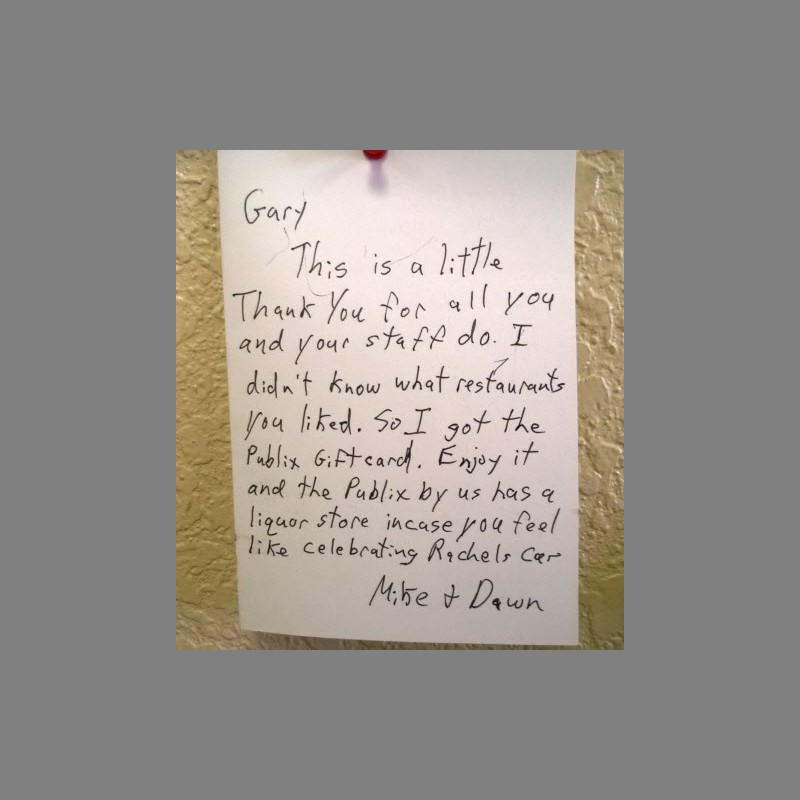 Gary
This is a little
Thank You for all you
and your staff do. I
didn't know what restaurants
you liked. So I got the
Publix Giftcard. Enjoy it
and the Publix by us has a
liquor store incase you feel
like celebrating Rachels car
Mike & Dawn